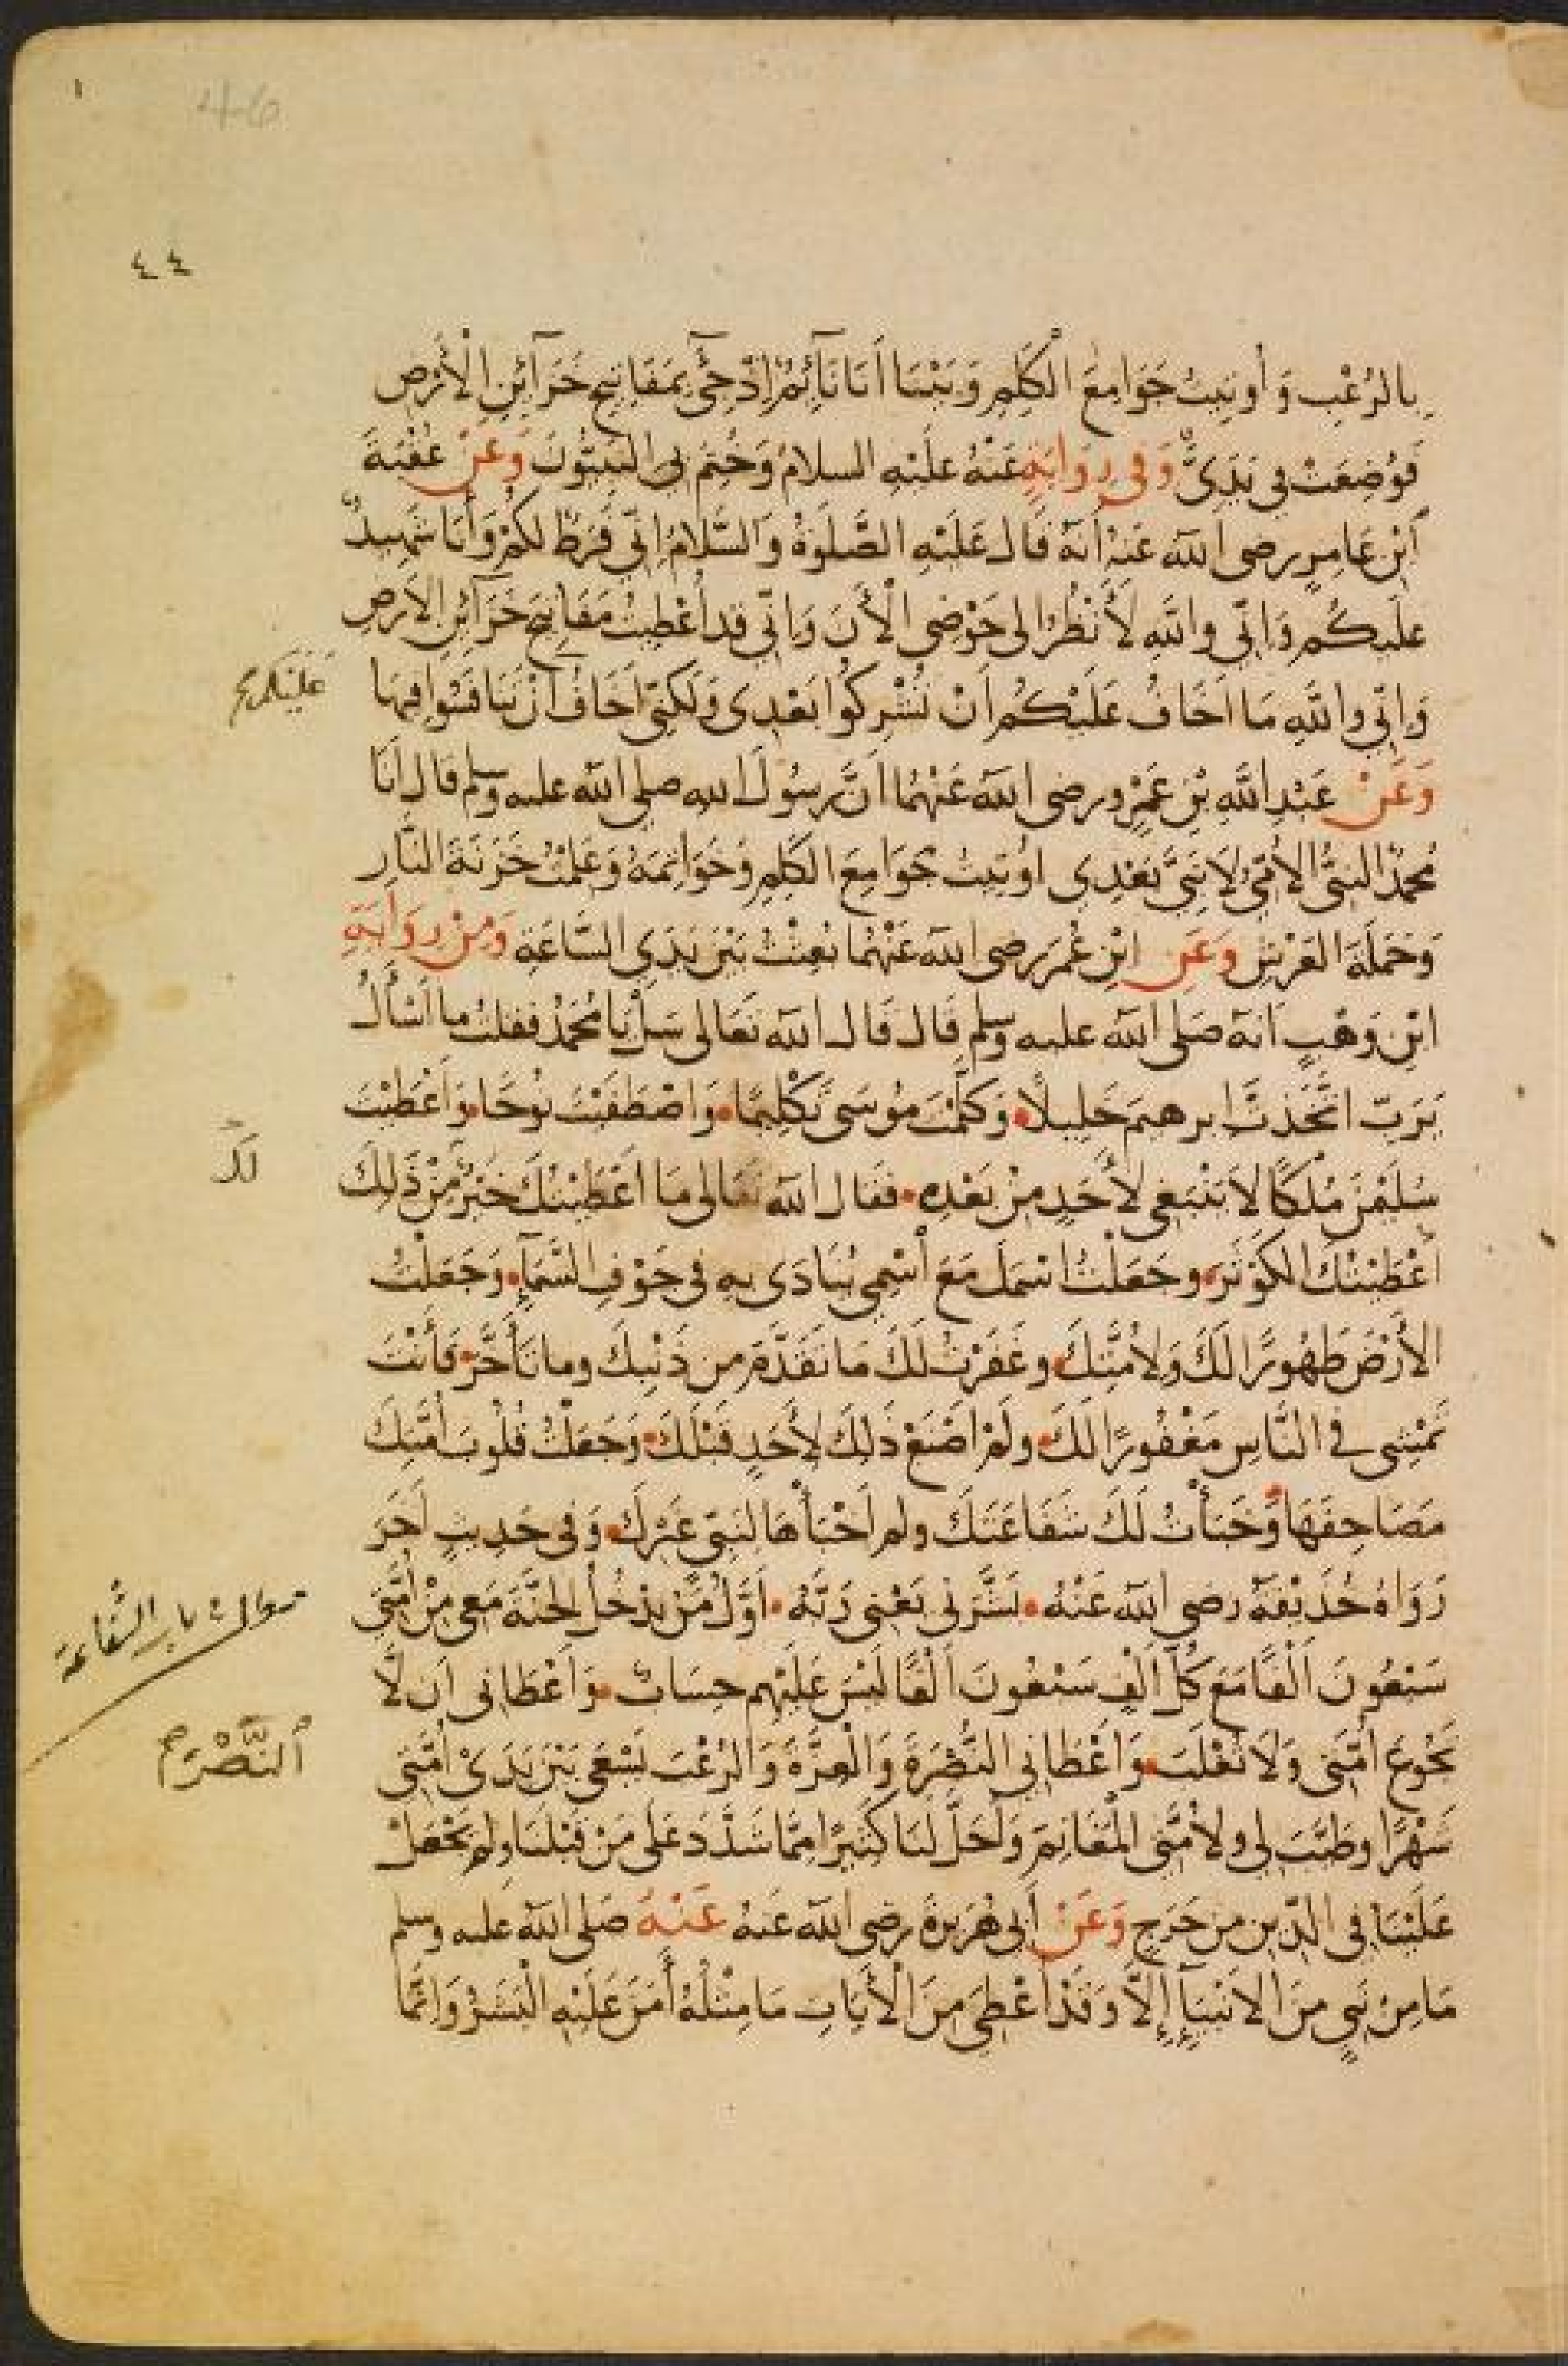 46
٤٤
بِالرُّعْبِ وَأُوتِيتُ جَوَامِعَ الْكَلِمِ وَبَيْنَا أَنَا نَآئِمٌ إِذْ جِئَ بِمَفَاتِيحِ خَزَآئِنِ الْأَرْضِ
فَوُضِعَتْ فِي يَدَيَّ وَفِي رِوَايَةٍ عَنْهُ عَلَيْهِ السلامُ وَخُتِمَ بِيَ النَّبِيُّونَ وَعَنْ عُقْبَةَ
ابْنِ عَامِرٍ رضى الله عَنْهُ أَنَّهُ قَالَ عَلَيْهِ الصَّلَوٰةُ وَالسَّلَامُ إِنِّي فَرَطٌ لَكُمْ وَأَنَا شَهِيدٌ
عَلَيْكُم وَإِنِّي وَاللَّهِ لَأَنْظُرُ إِلَى حَوْضِي الْأَنَ وَإِنِّي قَد أُعْطِيتُ مَفَاتِيحَ خَزَآئِنِ الأَرْضِ
وَإِنِّي وَاللَّهِ مَا أَخَافُ عَلَيْكُم أَنْ تُشْرِكُوا بَعْدِي وَلَكِنِّي أَخَافُ أَنْ تَنَافَسُوا فِيهَا
عَلَيْكُم
وَعَنْ عَبْدِ اللَّهِ بْنِ عَمْرٍو رضى الله عَنْهُمَا أَنَّ رَسُولَ الله صلى الله عليه وسلم قَالَ أَنَا
مُحَمَّدٌ النَّبِيُّ الْأُمِّيُّ لَا نَبِيَّ بَعْدِي أُوتِيتُ جَوَامِعَ الْكَلِمِ وَخَوَاتِمَهُ وَعَلِمْتُ خَزَنَةَ النَّارِ
وَحَمَلَةَ الْعَرْشِ وَعَنِ ابْنِ عُمَرَ رضى الله عَنْهُمَا بُعِثْتُ بَيْنَ يَدَيِ السَّاعَةِ وَمِنْ رِوَايَةِ
ابْنِ وَهْبٍ أَنَّهُ صَلى الله عليه وسلم قَالَ قَالَ الله تَعَالَى سَلْ يَا مُحَمَّدُ فَقُلْتُ مَا أَسْأَلُ
يَرَبِّ اتَّخَذْتَ ابرهيمَ خَلِيلًا وَكَلَّمْتَ مُوسَى تَكْلِيمًا وَاصْطَفَيْتَ نُوحًا وَأَعْطَيْتَ
سُلَيْمٰنَ مُلْكًا لَا يَنْبَغِي لِأَحَدٍ مِنْ بَعْدِهِ فَقَالَ الله تَعَالَى مَا أَعْطَيْتُكَ خَيْرٌ مِنْ ذَلِكَ
لَكَ
أَعْطَيْتُكَ الْكَوْثَرَ وَجَعَلْتُ اسْمَكَ مَعَ اسْمِي يُنَادَى بِهِ فِي جَوْفِ السَّمَآءِ وَجَعَلْتُ
الْأَرْضَ طَهُورًا لَكَ وَلِأُمَّتِكَ وَغَفَرْتُ لَكَ مَا تَقَدَّمَ مِن ذَنْبِكَ وَمَا تَأَخَّرَ فَأَنْتَ
تَمْشِي فِي النَّاسِ مَغْفُورًا لَكَ وَلَمْ أَصْنَعْ ذَلِكَ لِأَحَدٍ قَبْلَكَ وَجَعَلْتُ قُلُوبَ أُمَّتِكَ
مَصَاحِفَهَا وَخَبَأْتُ لَكَ شَفَاعَتَكَ وَلَم أَخْبَأْهَا لِنَبِيٍّ غَيْرِكَ وَفِي حَدِيثٍ أَخَرَ
رَوَاهُ حُذَيْفَةُ رضى الله عَنْهُ بَشَّرَنِي يَعْنِي رَبَّهُ أَوَّلُ مَنْ يَدْخُلُ الْجَنَّةَ مَعِي مِنْ أُمَّتِي
سَبْعُونَ أَلْفًا مَعَ كُلِّ أَلْفٍ سَبْعُونَ أَلْفًا لَيْسَ عَلَيْهِم حِسَابٌ وَأَعْطَانِي أَن لَّا
تَجُوعَ أُمَّتِي وَلَا تُغْلَبَ وَأَعْطَانِي النَّصْرَةَ وَالْعِزَّةَ وَالرُّعْبَ يَسْعَى بَيْنَ يَدَيْ أُمَّتِي
النَّصْرَ
شَهْرًا وَطَيَّبَ لِي وَلِأُمَّتِي الْمَغَانِمَ وَأَحَلَّ لَنَا كَثِيرًا مِمَّا شَدَّدَ عَلَى مَنْ قَبْلَنَا وَلَم يَجْعَلْ
عَلَيْنَا فِي الدِّينِ مِنْ حَرَجٍ وَعَنْ أَبِي هُرَيْرَةَ رضى الله عَنْهُ عَنْهُ صَلى الله عليه وسلم
مَا مِنْ نَبِيٍّ مِنَ الْأَنْبِيَآءِ إِلَّا وَقَدْ أُعْطِيَ مِنَ الْأَيَاتِ مَا مِثْلُهُ أَمَنَ عَلَيْهِ الْبَشَرُ وَإِنَّمَا